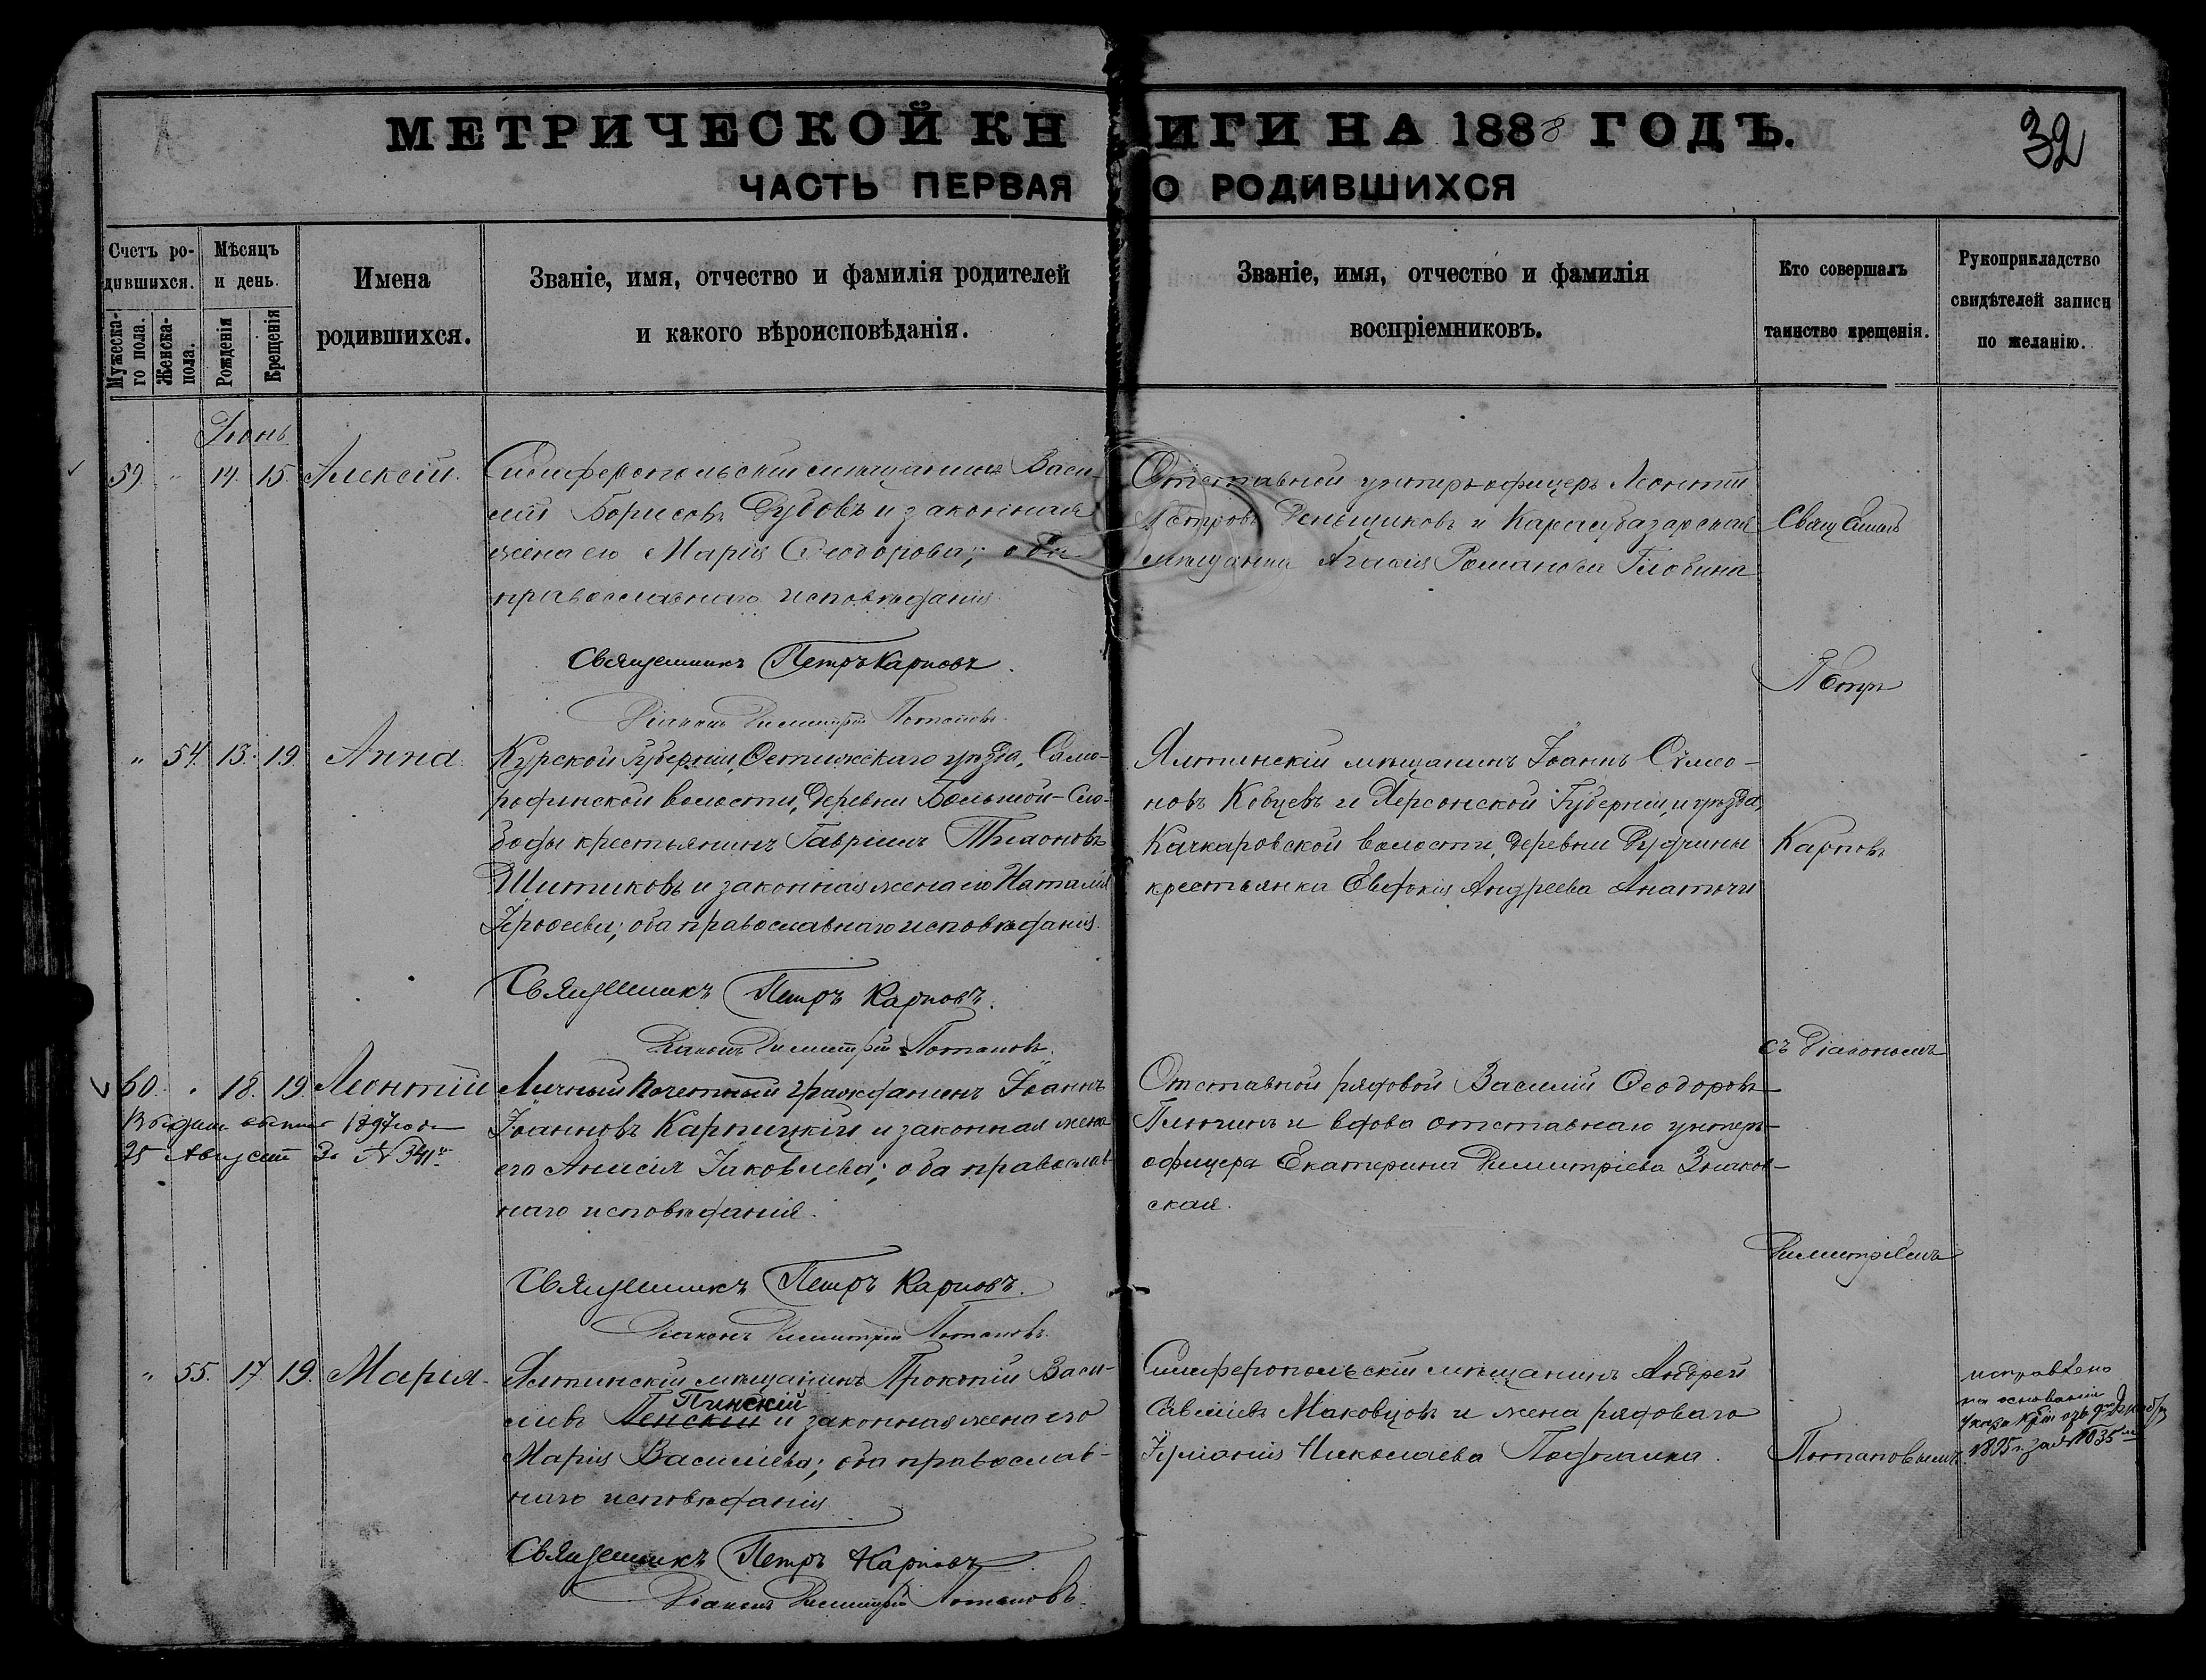 МЕТРИЧЕСКОЙ КНИГИ НА 1888 ГОДЪ.
32
ЧАСТЬ ПЕРВАЯ О РОДИВШИХСЯ
Счетъ родившихся.
Мужескаго пола.
Женска- пола.
Мѣсяцъ и день.
Рожденія
Крещенія
Имена родившихся.
Званіе, имя, отчество и фамилія родителей
и какого вѣроисповѣданія.
Званіе, имя, отчество и фамилія
воспріемниковъ.
Кто совершалъ
таинство крещенія.
Рукоприкладство
свидѣтелей записи
по желанію.
Іюнь
59. " 14. 15. Алексій.
Симферопольскій мѣщанинъ Васи-
лій Борисовъ Дубовъ и законная
жена его Марія Ѳеодорова; оба
православнаго исповѣданія.
Священникъ Петръ Карповъ.
Діаконъ Димитрій Потаповъ.
Отставной унтеръ-офицеръ Леонтій
Петровъ Деньщиковъ и Карасубазарская
мѣщанка Агаѳія Романова Глобина
" 54. 13. 19. Анна.
Курской Губерніи, уѣзда, Само-
рядинской волости, деревни Большой-Сло-
боды крестьянинъ Гавріилъ
Шитиковъ и законная жена его Наталія
оба православнаго исповѣданія.
Священникъ Петръ Карповъ.
Діаконъ Димитрій Потаповъ.
Ялтинскій мѣщанинъ Іоаннъ Сѵмео-
новъ и Херсонской Губерніи, и уѣзда,
Качкаровской волости, деревни
крестьянка Евдокія Андреева
60. " 18. 19. Леонтій
Выдана 1897 года
25 Августа за №
Личный Почетный гражданинъ Іоаннъ
Іоанновъ Карпицкій и законная жена
его Анисія Іаковлева; оба православ-
наго исповѣданія.
Священникъ Петръ Карповъ.
Діаконъ Димитрій Потаповъ.
Отставной рядовой Василій Ѳеодоровъ
и вдова отставнаго унтеръ-
офицера Екатерина Димитріева
ская.
" 55. 17. 19. Марія.
Ялтинскій мѣщанинъ Прокопій Васи-
Пинскій
ліевъ Пенскій и законная жена его
Марія Василіева; оба православ-
наго исповѣданія
Священникъ Петръ Карповъ
Діаконъ Димитрій Потаповъ.
Симферопольскій мѣщанинъ Андрей
Савеліевъ Маковцовъ и жена рядоваго
Іуліанія Николаева
Свящ
Петръ
Карповъ
съ Діакономъ
Димитріемъ
Потаповымъ.
исправлено
на основаніи
Указа
1895 г. за №